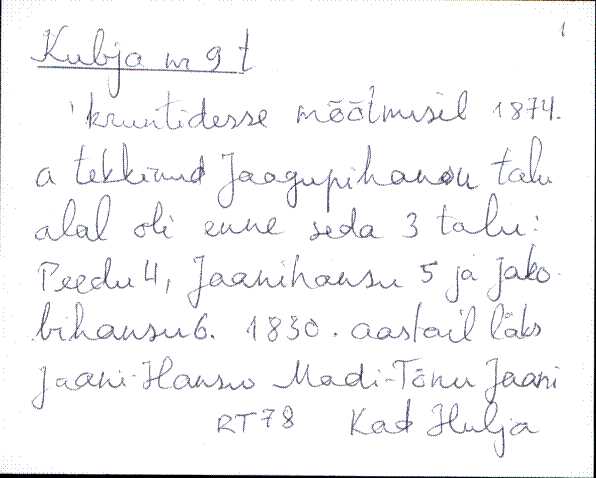 1
Kubja nr 9 t
kruntidesse mõõtmisel 1874.
a tekkinud Jaagupihansu talu
alal oli enne seda 3 talu:
Peedu 4, Jaanihansu 5 ja Jako-
bihansu 6. 1830. aastail läks
Jaani-Hansu Madi-Tõnu Jaani
RT78 Kad Hulja